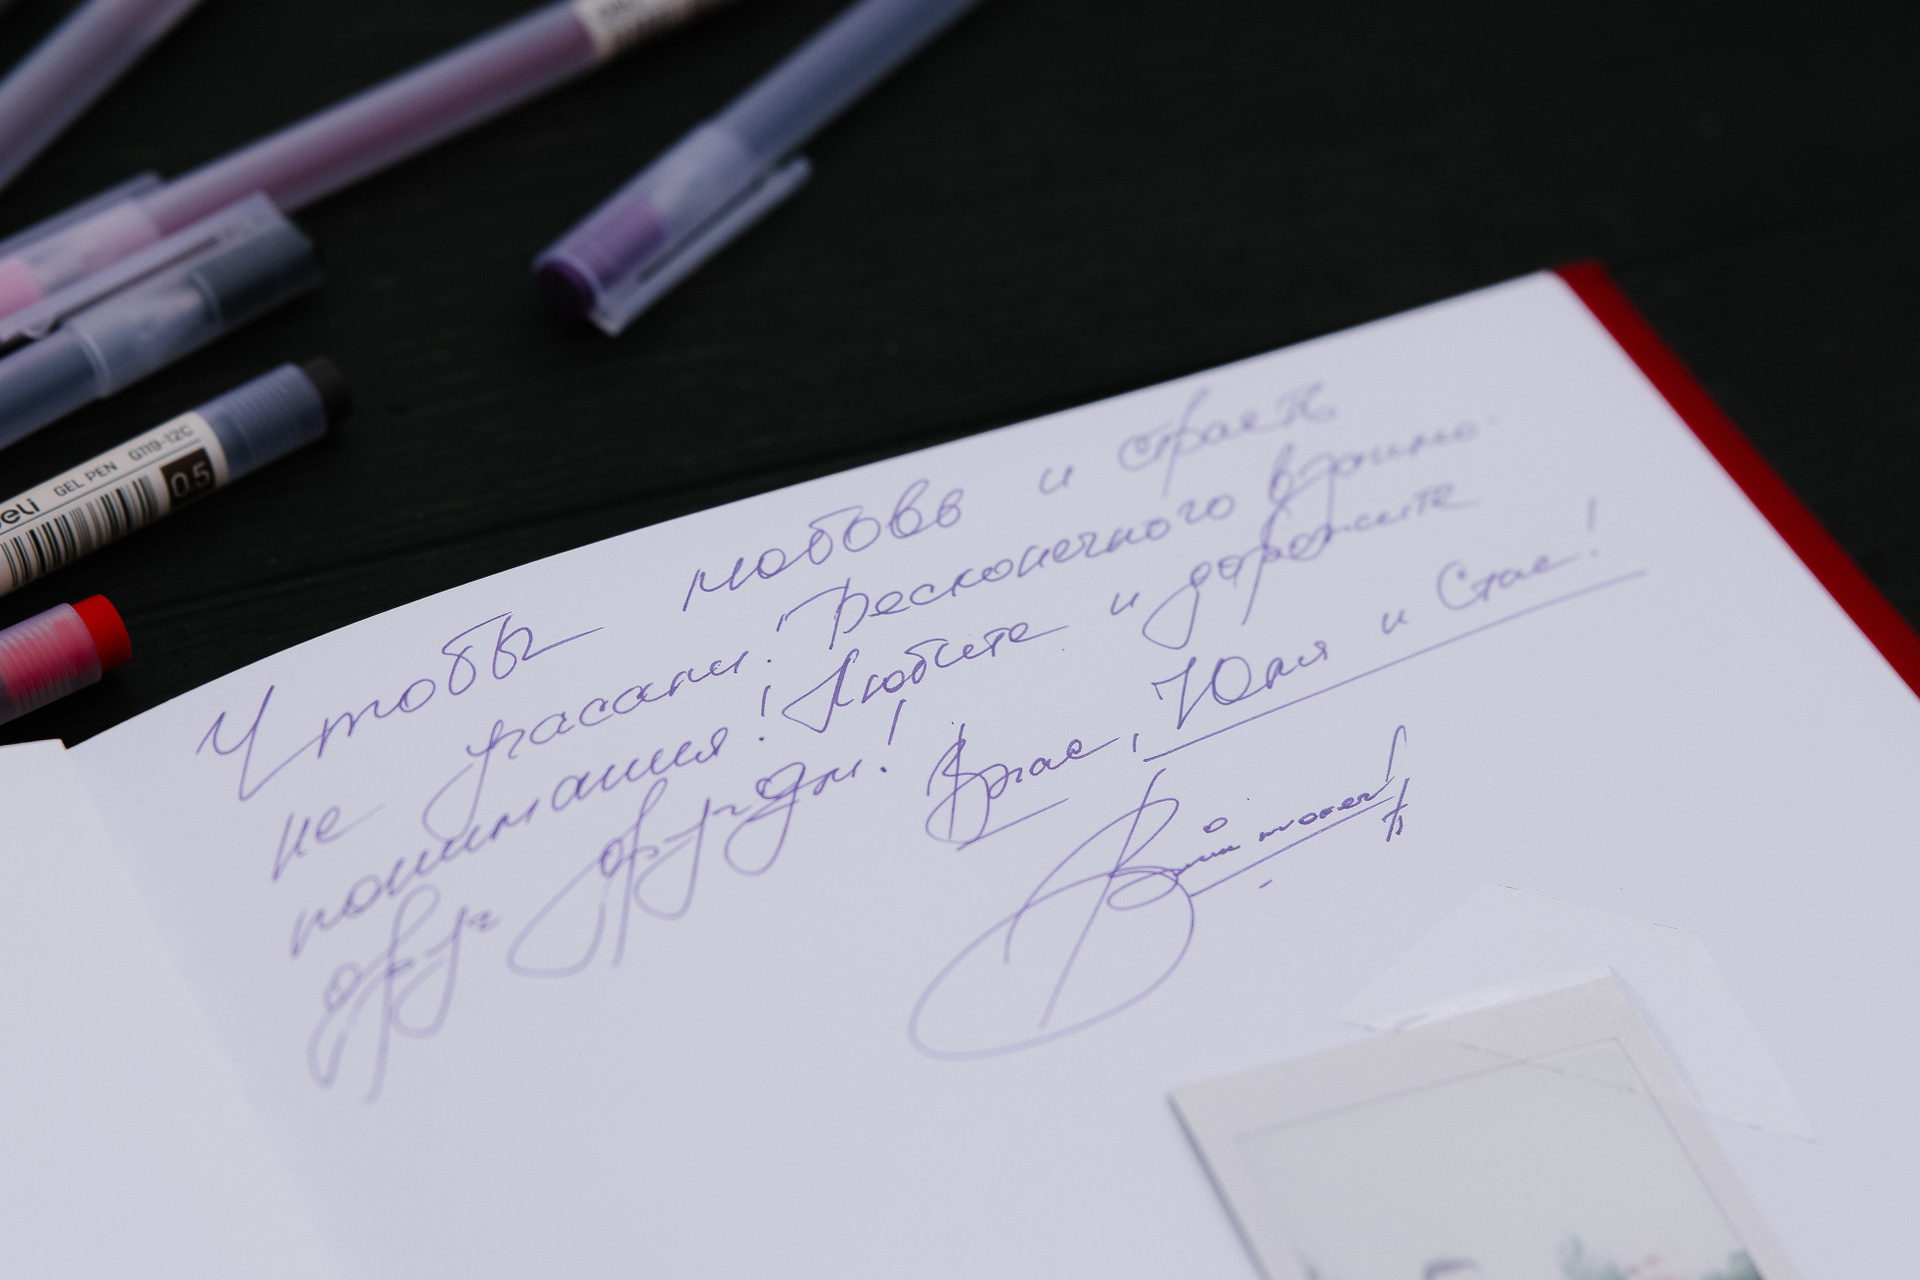 deli GEL PEN G119-12C
0.5
Чтобы любовь и страсть
не угасали. Бесконечного взаимо-
понимания! Любите и дорожите
друг другом! Юля и Стас!